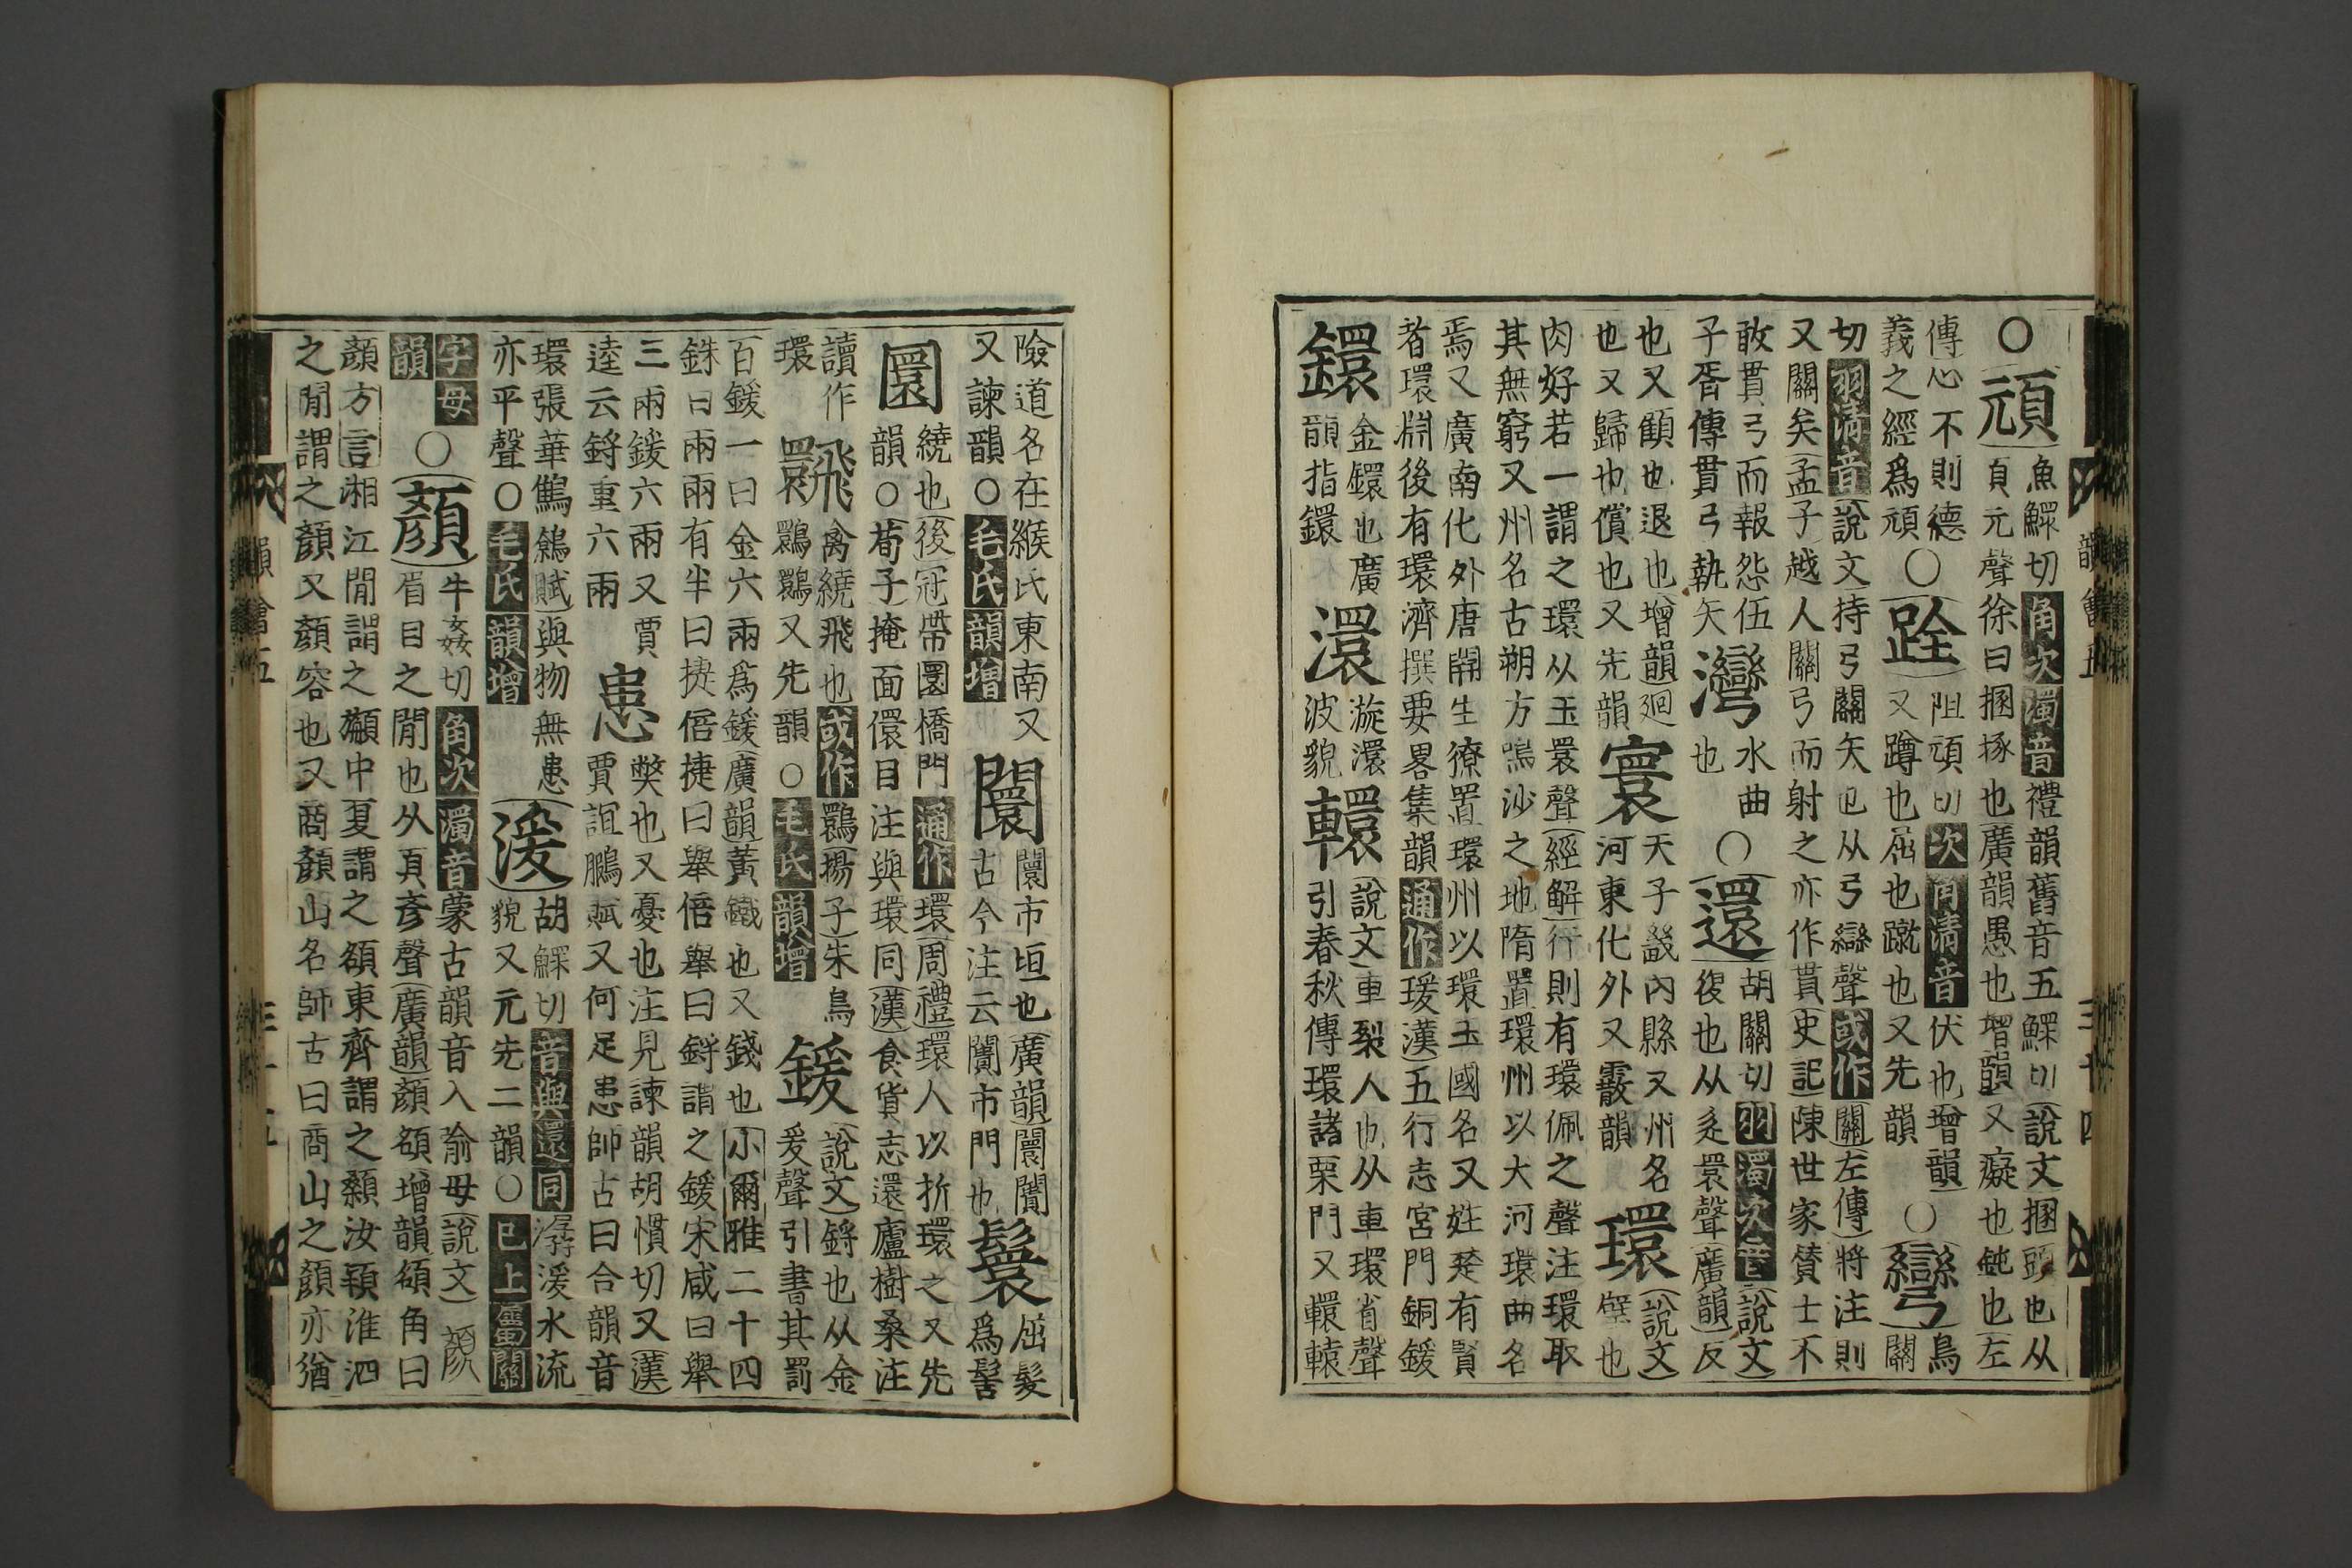 ○頑魚鰥切角次濁音禮韻舊音五鰥切說文㮯頭也从
頁元聲徐曰㮯㧻也廣韻愚也增韻又癡也鈍也左
傳心不則德義之經爲頑○跧阻頑切次商清音伏也增韻又蹲也屈也蹴也又先韻○彎烏關
切羽清音說文持弓關矢也从弓䜌聲或作關左傳將注則
又關矣孟子越人關弓而射之亦作貫史記陳世家賛士不
敢貫弓而報怨伍子胥傳貫弓執矢灣水曲也○還胡關切羽濁次音說文復也从辵睘聲廣韻反
也又顧也退也增韻廻也又歸也償也又先韻寰天子畿內縣又州名河東化外又霰韻環說文璧也
肉好若一謂之環从玉睘聲經解行則有環佩之聲注環取
其無窮又州名古朔方鳴沙之地隋置環州以大河環曲名
焉又廣南化外唐開生獠置環州以環玉國名又姓楚有賢
者環淵後有環濟撰要畧集韻通作瑗漢五行志宮門銅鍰
鐶金鐶也廣韻指鐶澴漩澴波貌轘說文車裂人也从車環省聲引春秋傳環諸栗門又轘轅
險道名在緱氏東南又又諫韻○毛氏韻增闤闤市垣也廣韻闤闠古今注云闠市門也鬟屈髮爲髻
圜繞也後冠帶圜橋門通作環周禮環人以折環之又先
韻○荀子掩面儇目注與環同漢食貨志還廬樹桑注
讀作環䴉飛禽繞飛也或作鸓揚子朱鳥䴉䴉又先韻○毛氏韻增鍰說文鋝也从金爰聲引書其罰
百鍰一曰金六兩爲鍰廣韻黃鐵也又錢也小爾雅二十四
銖曰兩兩有半曰捷倍捷曰舉倍舉曰鋝謂之鍰宋咸曰舉
三兩鍰六兩又賈逵云鋝重六兩患獘也又憂也注見諫韻胡慣切又漢賈誼鵬賦又何足患師古曰合韻音
環張華鷦鷯賦與物無患亦平聲○毛氏韻增湲胡鰥切音與還同潺湲水流貌又元先二韻○已上屬關
字母韻○顏牛姦切角次濁音蒙古韻音入喻母說文
眉目之閒也从頁彥聲廣韻顏頟增韻頟角曰
顏方言湘江閒謂之䫙中夏謂之頟東齊謂之顙汝潁淮泗
之閒謂之顏又顏容也又商顏山名師古曰商山之顏亦猶